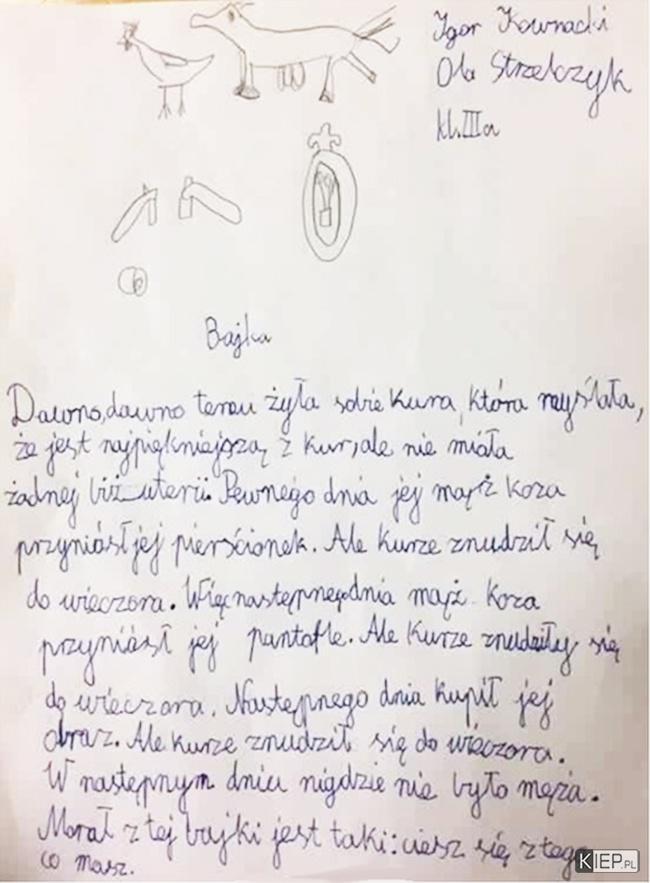 Igor Kownacki
Ola Strzelczyk
kl. III a
Bajka
Dawno, dawno temu żyła sobie kura, która myślała,
że jest najpiękniejszą z kur, ale nie miała
żadnej biżuterii. Pewnego dnia jej mąż koza
przyniósł jej pierścionek. Ale kurze znudził się
do wieczora. Więc następnego dnia mąż koza
przyniósł jej pantofle. Ale kurze znudziły się
do wieczora. Następnego dnia kupił jej
obraz. Ale kurze znudził się do wieczora.
W następnym dniu nigdzie nie było męża.
Morał z tej bajki jest taki: ciesz się z tego
co masz.
KIEP.PL